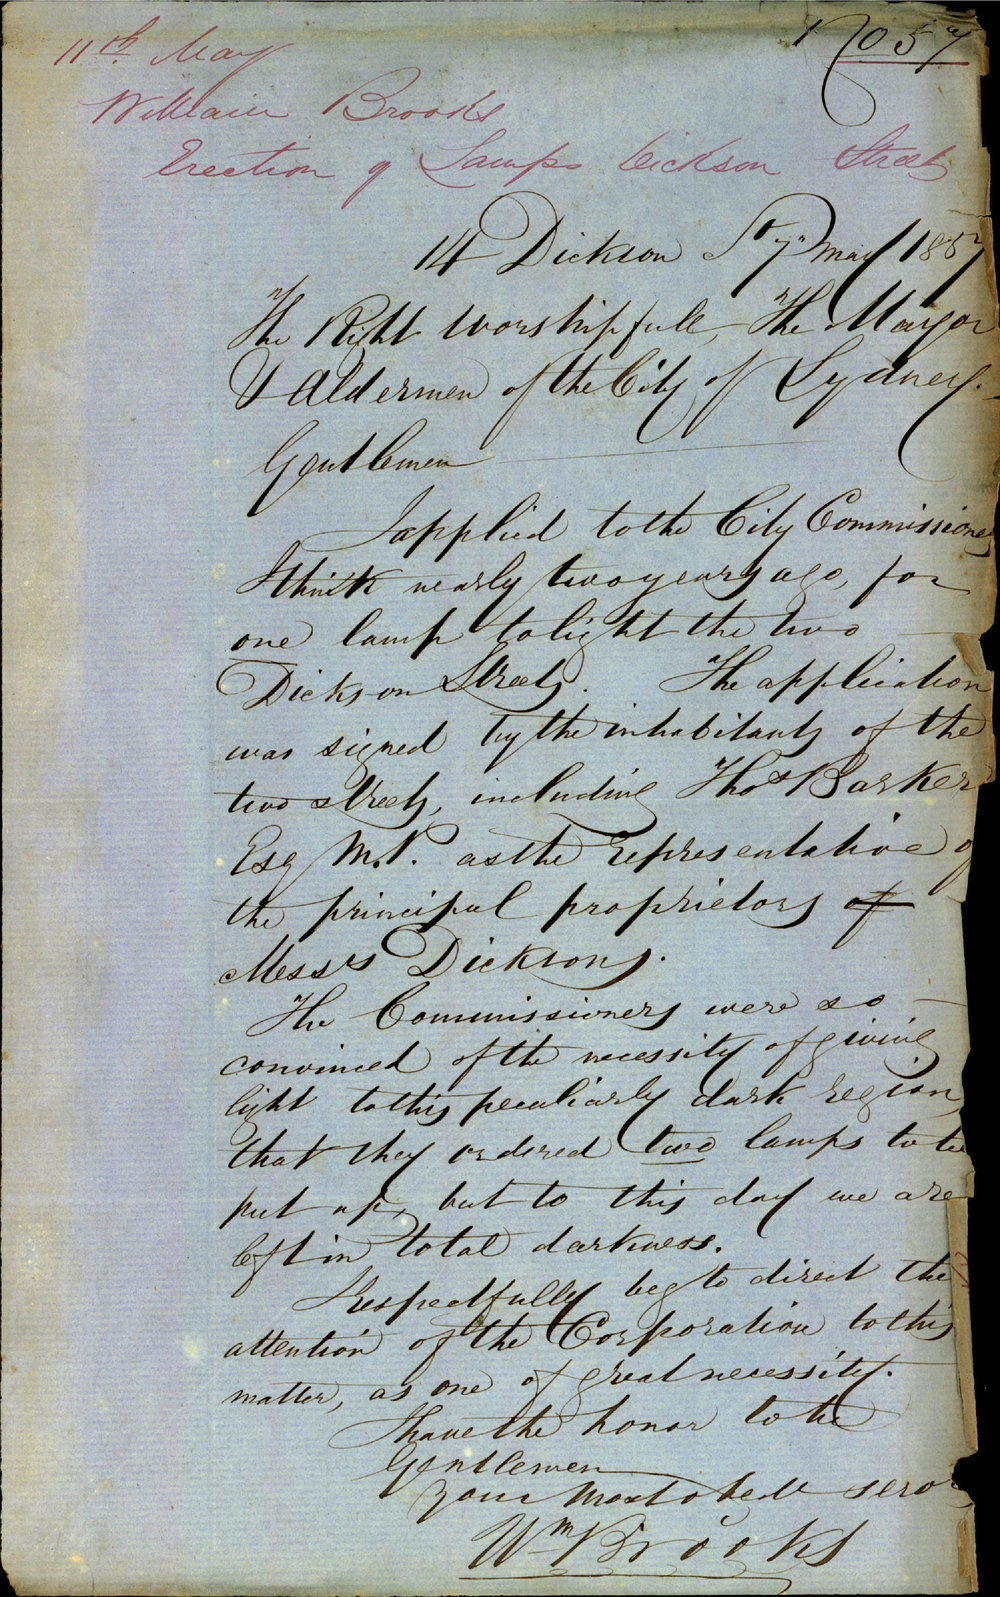 No 57
11th May
William Brooks
Erection of Lamps Dickson Street
14 Dickson St 7th May 1857
The Right Worshipfull, The Mayor
& Aldermen of the City of Sydney.
Gentlemen
I applied to the City Commissioners
I think nearly two years ago, for
one lamp to light the two
Dickson Streets. The application
was signed by the inhabitants of the
two streets, including Thos Barker
Esq M.P. as the representative of
the principal proprietors of
Messrs Dicksons.
The Commissioners were so
convinced of the necessity of giving
light to this peculiarly dark region,
that they ordered two lamps to be
put up, but to this day we are
left in total darkness.
I respectfully beg to direct the
attention of the Corporation to this
matter, as one of great necessity.
I have the honor to be
Gentlemen
Your most obedt serv
Wm Brooks